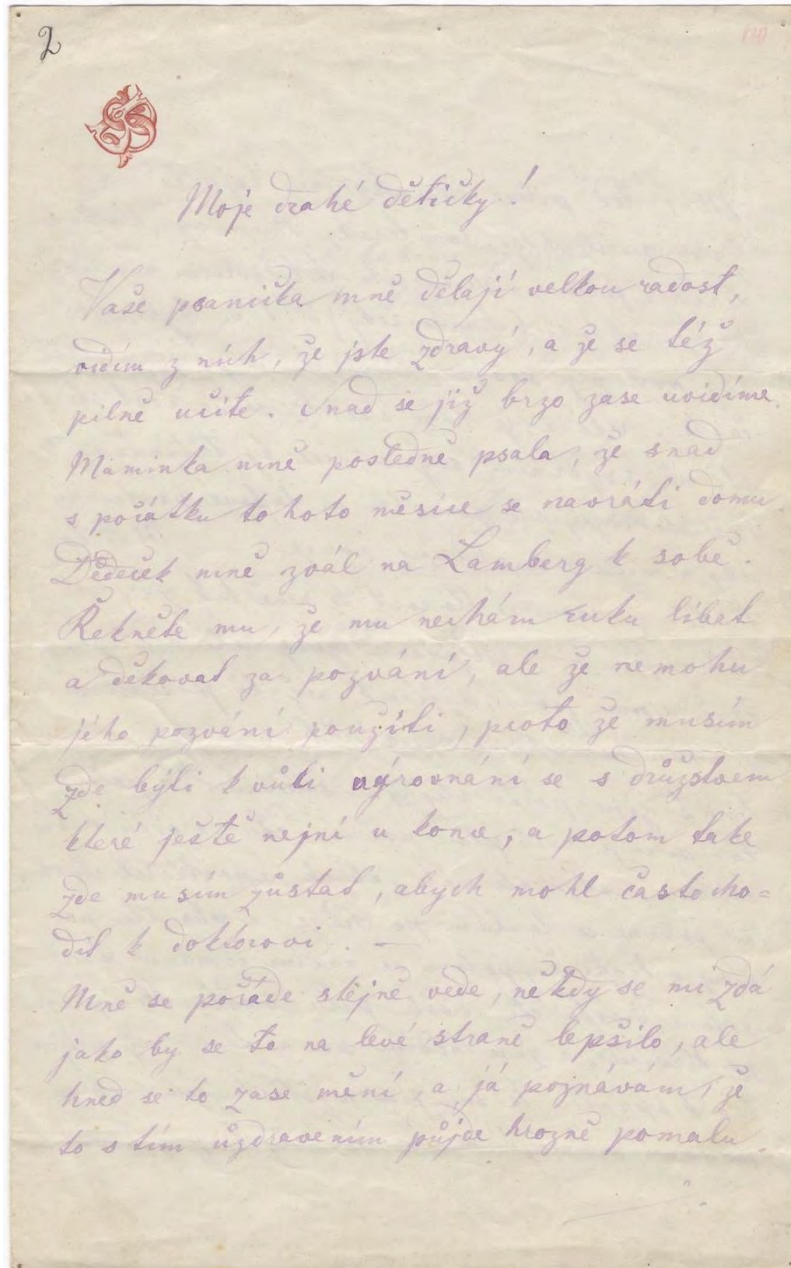 2
Moje drahé dětičky!
Vaše psaníčka mně dělají velkou radost,
vidím z nich, že jste zdravý, a že se též
pilně učíte. Snad se již brzo zase uvidíme.
Maminka mně posledně psala, že snad
s počátku tohoto měsíce se navrátí domu
Dědeček mně zval na Lamberg k sobě.
Řekněte mu, že mu nechám ruku líbat
a děkovat za pozvání, ale že nemohu
jeho pozvání použíti, proto že musím
zde býti k vůli vyrovnání se s družstvem
které ještě nejní u konce, a potom take
zde musím zůstat, abych mohl často cho=
dit k doktorovi. —
Mně se pořáde stejně vede, někdy se mi zdá
jako by se to na levé straně lepšilo, ale
hned se to zase mění, a já poznávám, že
to s tím uzdravením půjde hrozně pomalu.